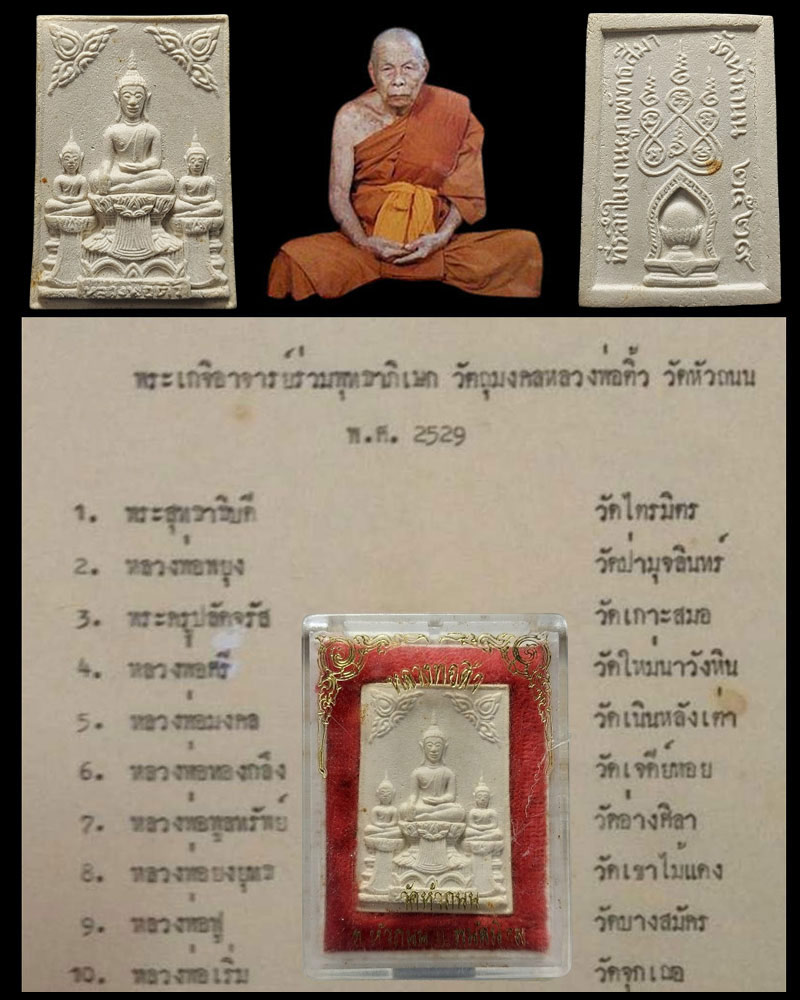 หลวงพ่อติ้ว
ที่ระลึกในงานผูกพัทธสีมา
วัดหัวถนน ๒๕๒๙
พระเกจิอาจารย์ร่วมพุทธาภิเษก วัตถุมงคลหลวงพ่อติ้ว วัดหัวถนน
พ.ศ. 2529
1. พระสุทธาธิบดี วัดไตรมิตร
2. หลวงพ่อพยุง วัดป่ามุจลินทร์
3. พระครูปลัดจรัส วัดเกาะสมอ
4. หลวงพ่อศรี วัดใหม่นาวังหิน
5. หลวงพ่อมงคล วัดเนินหลังเต่า
6. หลวงพ่อทองกลึง วัดเจดีย์หอย
7. หลวงพ่อพูลทรัพย์ วัดอ่างศิลา
8. หลวงพ่อยงยุทธ วัดเขาไม้แดง
9. หลวงพ่อฟู วัดบางสมัคร
10. หลวงพ่อเริ่ม วัดจุกเฌอ
หลวงพ่อติ้ว
วัดหัวถนน